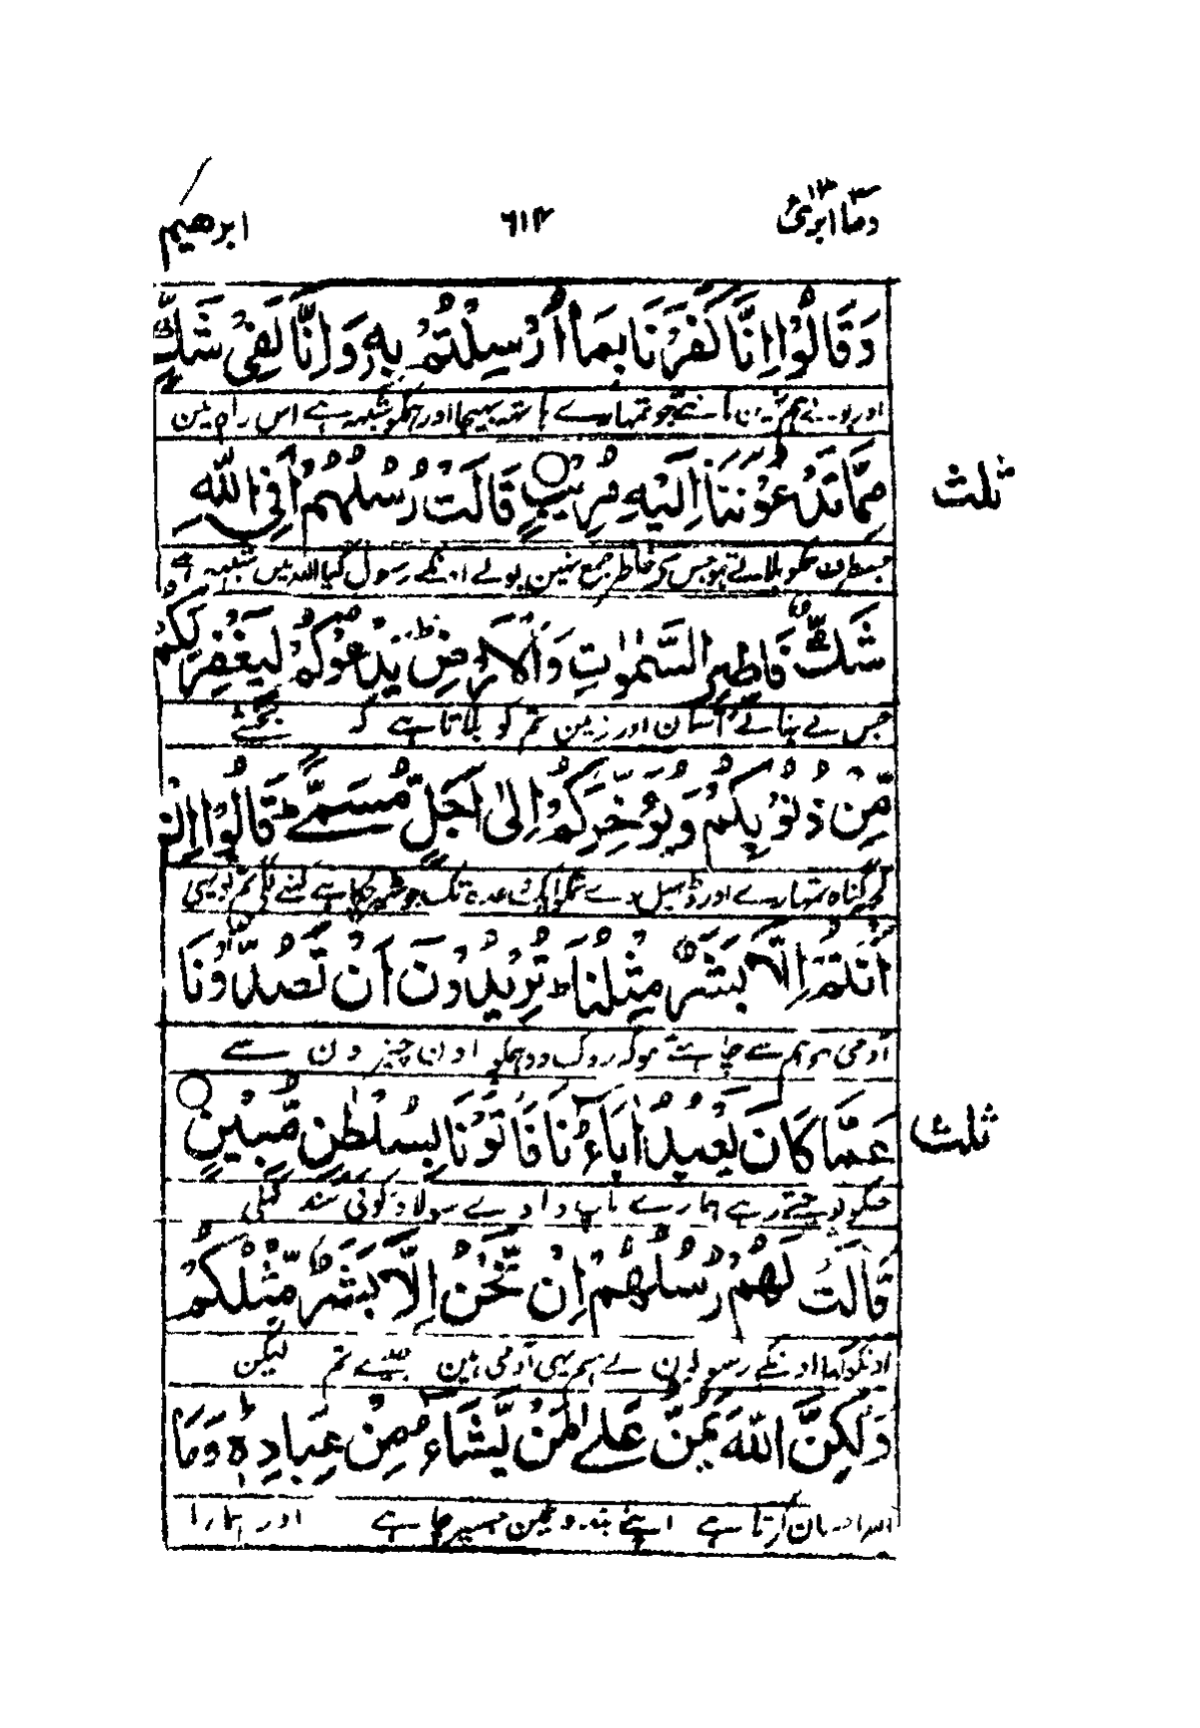 ومآ ابرئ ١٣ ٦١٢ ابرهيم
وَقَالُوْا اِنَّا كَفَرْنَا بِمَا اُرْسِلْتُمْ بِهٖ وَاِنَّا لَفِىْ شَكٍّ
جو تمہارے ہاتھ بھیجا اور ہمکو شبہہ ہے اس راہ مین
مِّمَّا تَدْعُوْنَنَا اِلَيْهِ مُرِيْبٍ قَالَتْ رُسُلُهُمْ اَفِى اللّٰهِ
ثلث
جسطرف ہمکو بلاتے ہو جس کو خاطر جمع نہین بولے اونکے رسول کیا اللہ مین شبہہ ہے
شَكٌّ فَاطِرِ السَّمٰوٰتِ وَالْاَرْضِ ؕ يَدْعُوْكُمْ لِيَغْفِرَ لَكُمْ
جس نے بنائے آسمان اور زمین تم کو بلاتا ہے کہ بخشے
مِّنْ ذُنُوْبِكُمْ وَيُؤَخِّرَكُمْ اِلٰى اَجَلٍ مُّسَمًّى ؕ قَالُوْا اِنْ
کچھ گناہ تمہارے اور ڈھیل دے تمکو ایک وعدہ تک جو ٹھہر چکا ہے کہنے لگے تم تو یہی
اَنْتُمْ اِلَّا بَشَرٌ مِّثْلُنَا ؕ تُرِيْدُوْنَ اَنْ تَصُدُّوْنَا
آدمی ہو ہم سے چاہتے ہو کہ روک دو ہمکو اون چیزون سے
عَمَّا كَانَ يَعْبُدُ اٰبَآؤُنَا فَاْتُوْنَا بِسُلْطٰنٍ مُّبِيْنٍ
ثلث
جنکو پوجتے رہے ہمارے باپ دادے سو لاؤ کوئی سند کھلی
قَالَتْ لَهُمْ رُسُلُهُمْ اِنْ نَّحْنُ اِلَّا بَشَرٌ مِّثْلُكُمْ
اونکو کہا اونکے رسولون نے ہم یہی آدمی ہین جیسے تم لیکن
وَلٰكِنَّ اللّٰهَ يَمُنُّ عَلٰى مَنْ يَّشَآءُ مِنْ عِبَادِهٖ ؕ وَمَا
اللہ احسان کرتا ہے اپنے بندونمین جسپر چاہے اور ہمارا